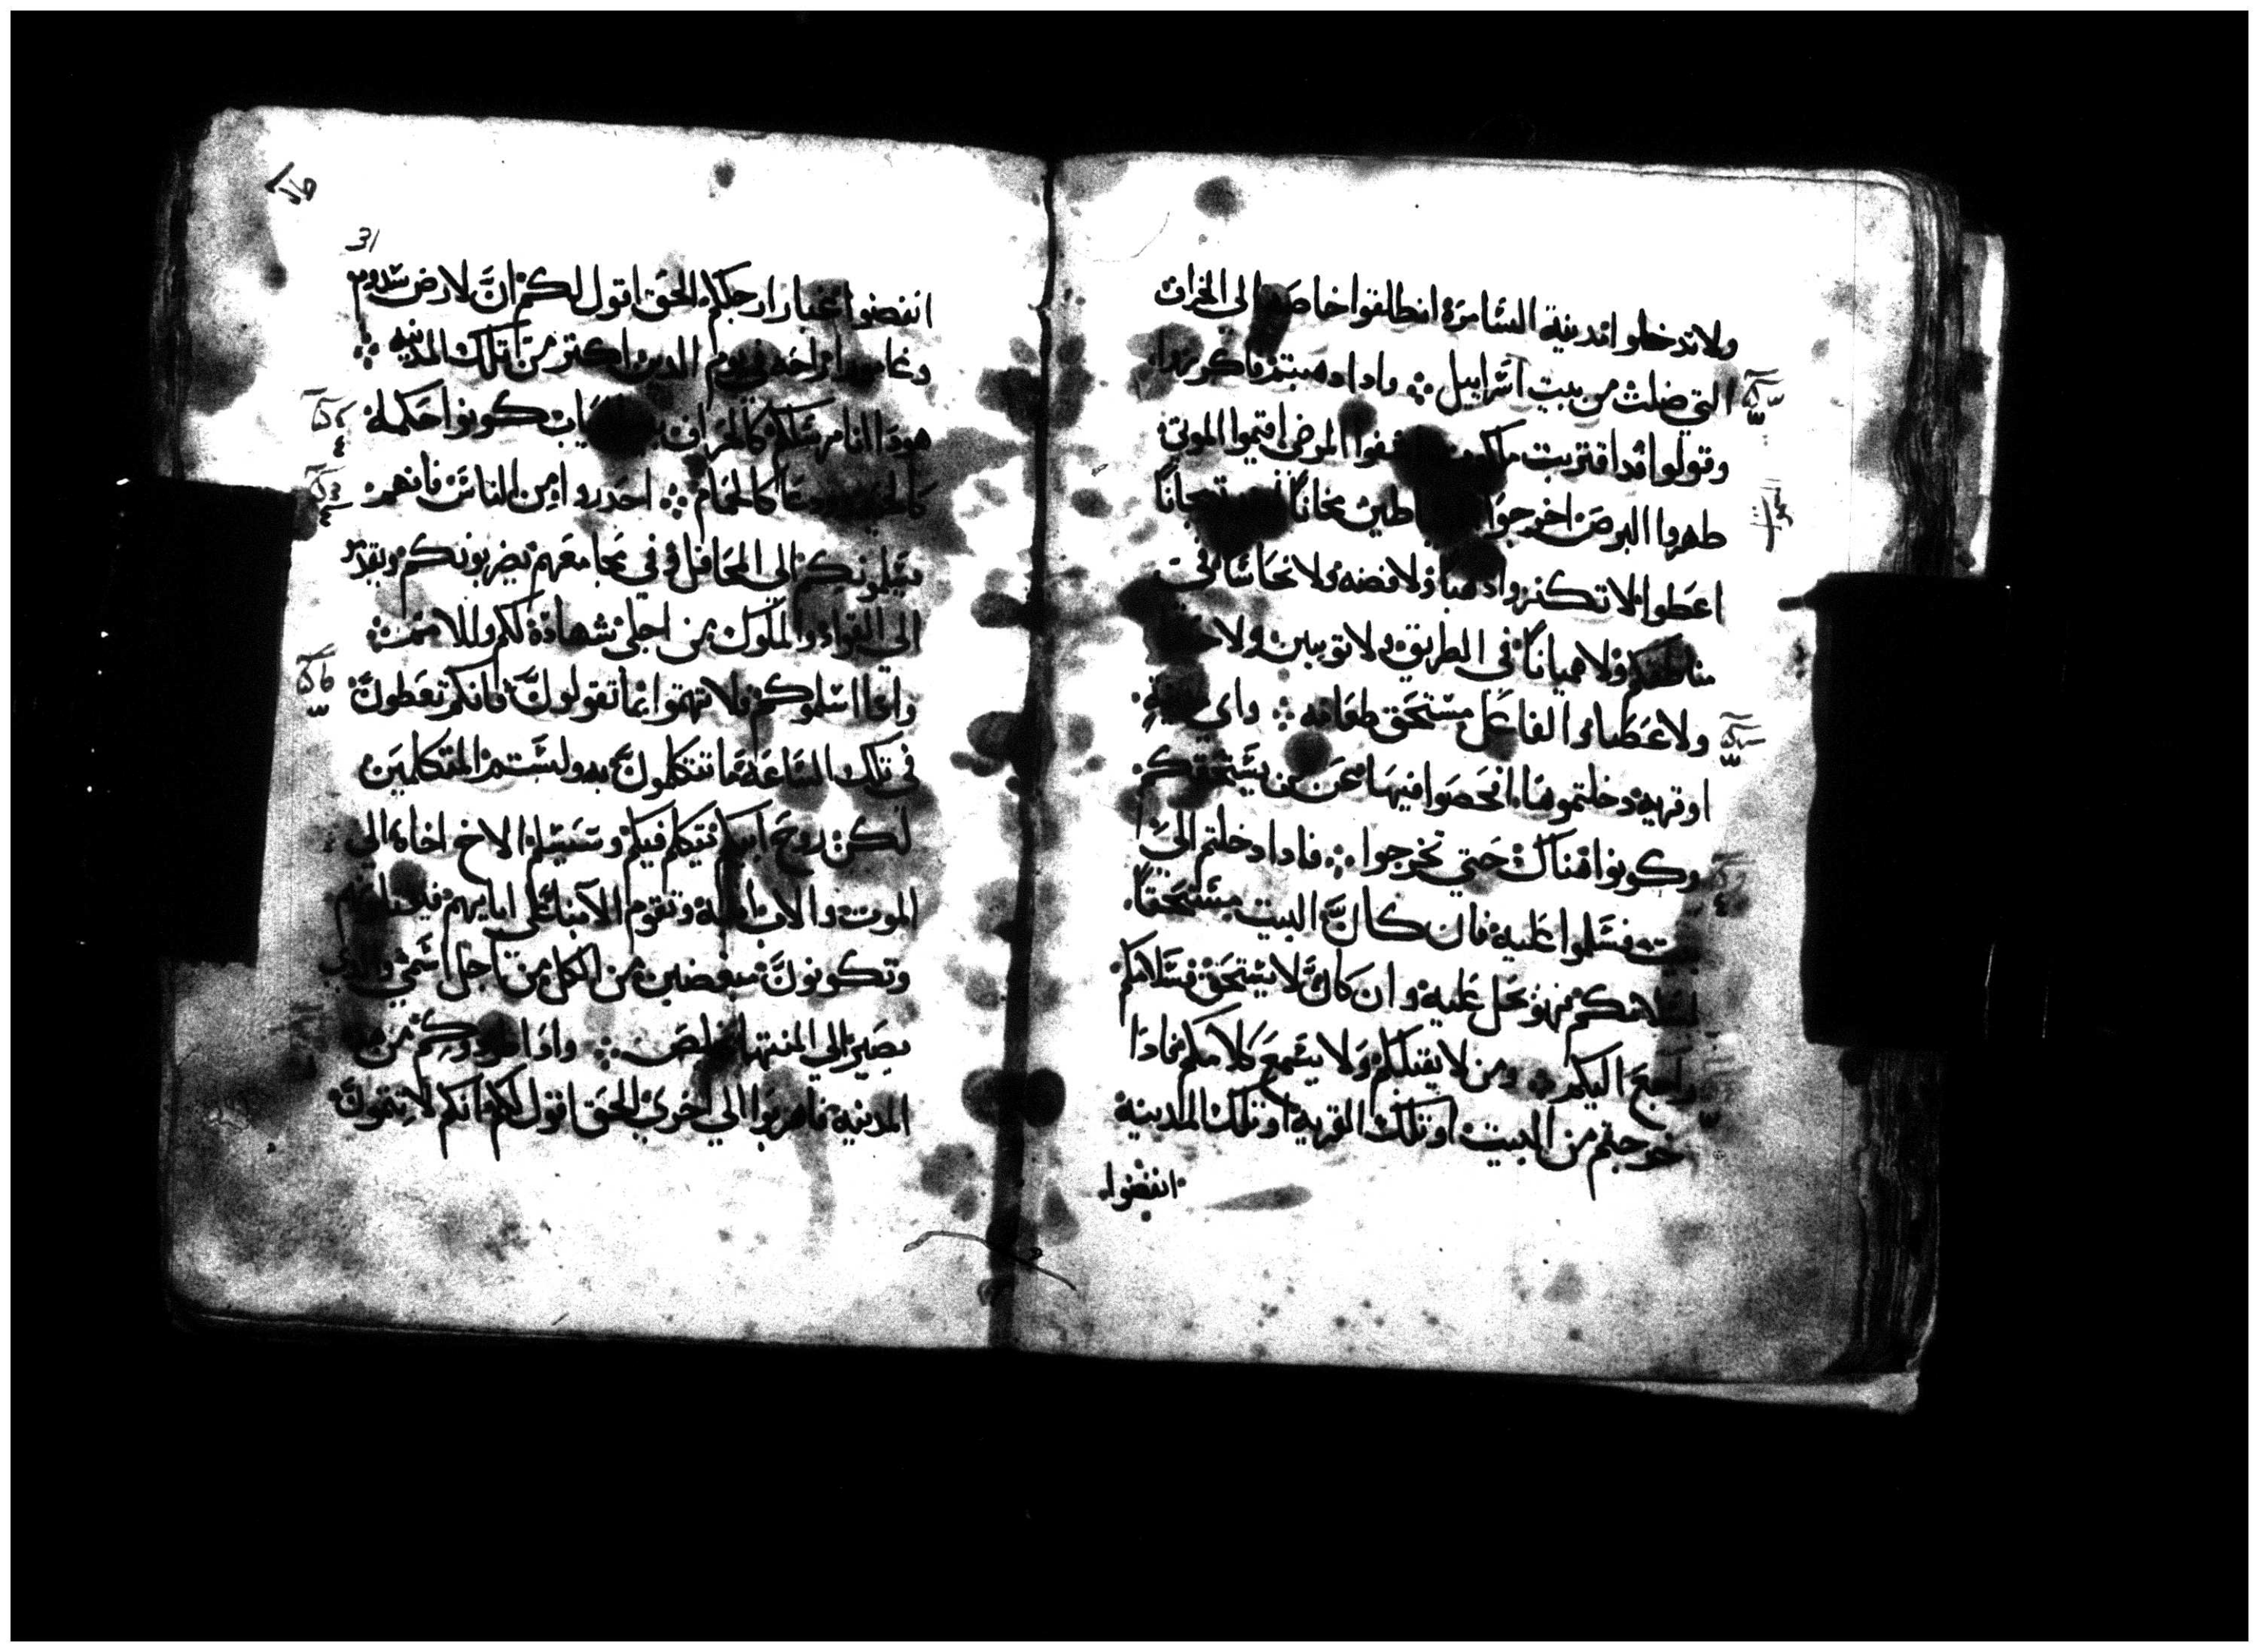 ولا تدخلوا مدينة السامرة انطلقوا خاصة الي الخراف
التي ضلت من بيت اسراييل ❖ واذا ذهبتم فاكرزوا
وقولوا قد اقتربت ملكوت اشفوا المرضي اقيموا الموتي
طهروا البرص اخرجوا الشياطين مجانًا مجانًا
اعطوا لا تكنزوا ذهبا ولا فضه ولا نحاسًا في
مناطقكم ولا هميانًا في الطريق ولا توبين ولا
ولا عصا والفاعل مستحق طعامه ❖ واي مدينة
او قرية دخلتموها افحصوا فيها عن من يستحقكم
وكونوا هناك حتي تخرجوا ❖ فاذا دخلتم الي
بيت فسلموا عليه فان كان البيت مستحقًا
فسلامكم فهو يحل عليه وان كان لا يستحق فسلامكم
راجع اليكم ❖ ومن لا يقبلكم ولا يسمع كلامكم فاذا
خرجتم من البيت او تلك القرية او تلك المدينة
انفضوا
31
انفضوا غبار ارجلكم الحق اقول لكم ان لارض سدوم
وغامورا راحه في يوم الدين اكتر من تلك المدينه ❖
هوذا انا مرسلكم كالخراف كونوا حكماء
كالحيات ودعا كالحمام ❖ احدروا من الناس فانهم
يسلمونكم الي المحافل وفي مجامعهم يضربونكم ويقدم
الي القواد والملوك من اجلي شهادة لكم وللامم
واذا اسلموكم فلا تهتموا بما تقولون فانكم تعطون
في تلك الساعة ما تتكلمون به ولستم المتكلمين
لكن روح ابيكم يتكلم فيكم وسيسلم الاخ اخاه الي
الموت والاب ابنه وتقوم الابنا علي ابايهم فيقتلونهم
وتكونون مبغضين من الكل من اجل اسمي والذي
يصبر الي المنتها يخلص ❖ واذا طردوكم من هذه
المدينه فاهربوا الي اخري الحق اقول لكم انكم لا تتمون